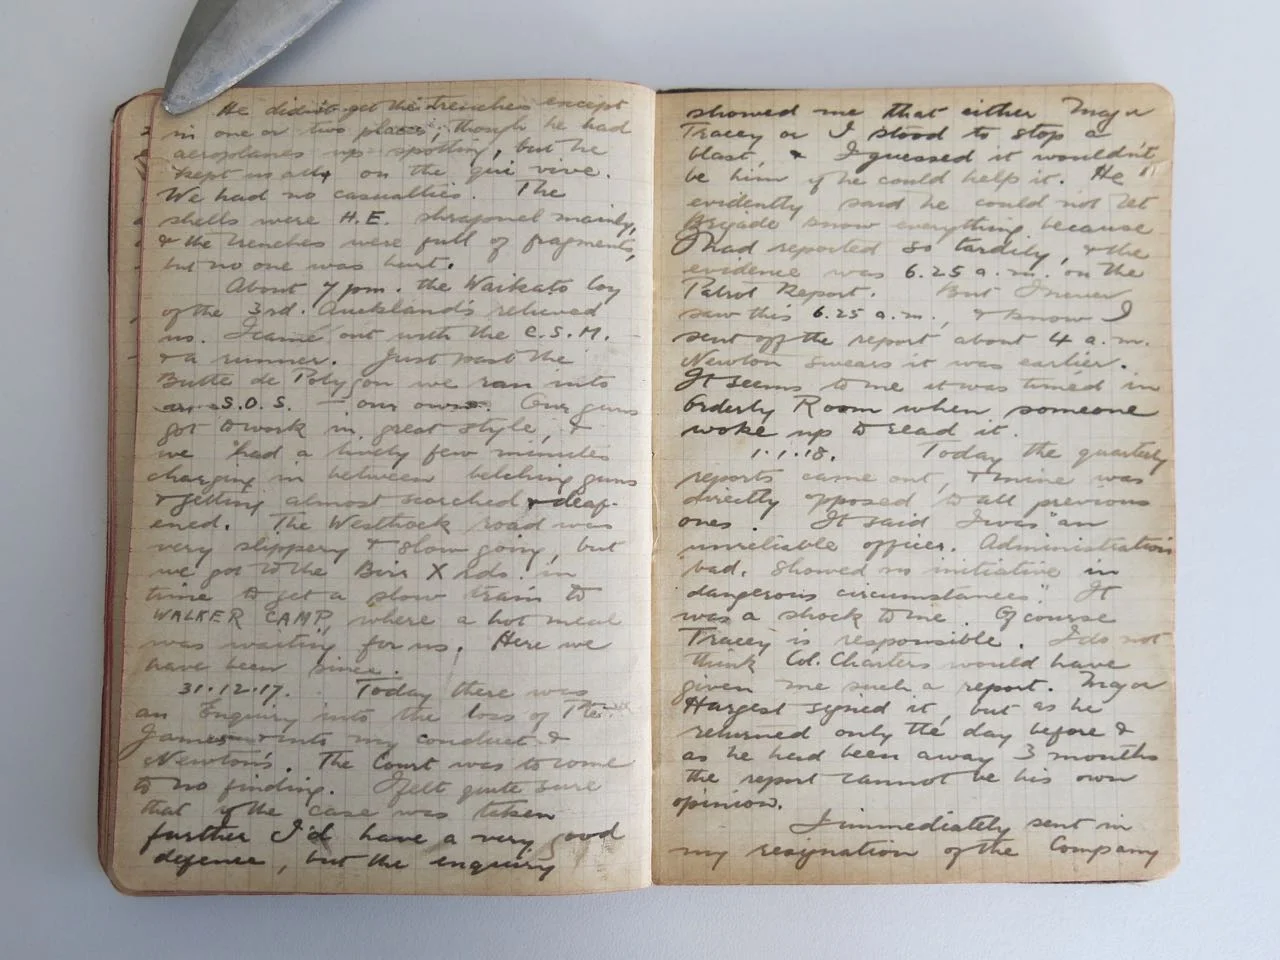 He didn't get the trenches except
in one or two places, though he had
aeroplanes up spotting, but he
kept us all on the qui vive.
We had no casualties. The
shells were H.E. shrapnel mainly,
& the trenches were full of fragments,
but no one was hurt.
About 7 pm. the Waikato Coy
of the 3rd. Aucklands relieved
us. I came out with the C.S.M.
& a runner. Just past the
Butte de Polygon we ran into
an S.O.S. — our own. Our guns
got to work in great style, &
we had a lively few minutes
charging in between belching guns
& getting almost scorched & deaf-
ened. The Westhoek road was
very slippery & slow going, but
we got to the Birr X Rds. in
time to get a slow train to
WALKER CAMP, where a hot meal
was waiting for us. Here we
have been since.
31.12.17. Today there was
an Enquiry into the loss of Pte.
James & into my conduct &
Newton's. The Court was to come
to no finding. I felt quite sure
that if the case was taken
further I'd have a very good
defence, but the enquiry
showed me that either Major
Tracey or I stood to stop a
blast, & I guessed it wouldn't
be him if he could help it. He
evidently said he could not let
Brigade know everything because
I had reported so tardily, & the
evidence was 6.25 a.m. on the
Patrol Report. But I never
saw this 6.25 a.m., & know I
sent off the report about 4 a.m.
Newton swears it was earlier.
It seems to me it was timed in
Orderly Room when someone
woke up to read it.
1.1.18. Today the quarterly
reports came out, & mine was
directly opposed to all previous
ones. It said I was "an
unreliable officer. Administration
bad. Showed no initiative in
dangerous circumstances." It
was a shock to me. Of course
Tracey is responsible. I do not
think Col. Charters would have
given me such a report. Major
Hargest signed it, but as he
returned only the day before &
as he had been away 3 months
the report cannot be his own
opinion.
I immediately sent in
my resignation of the Company